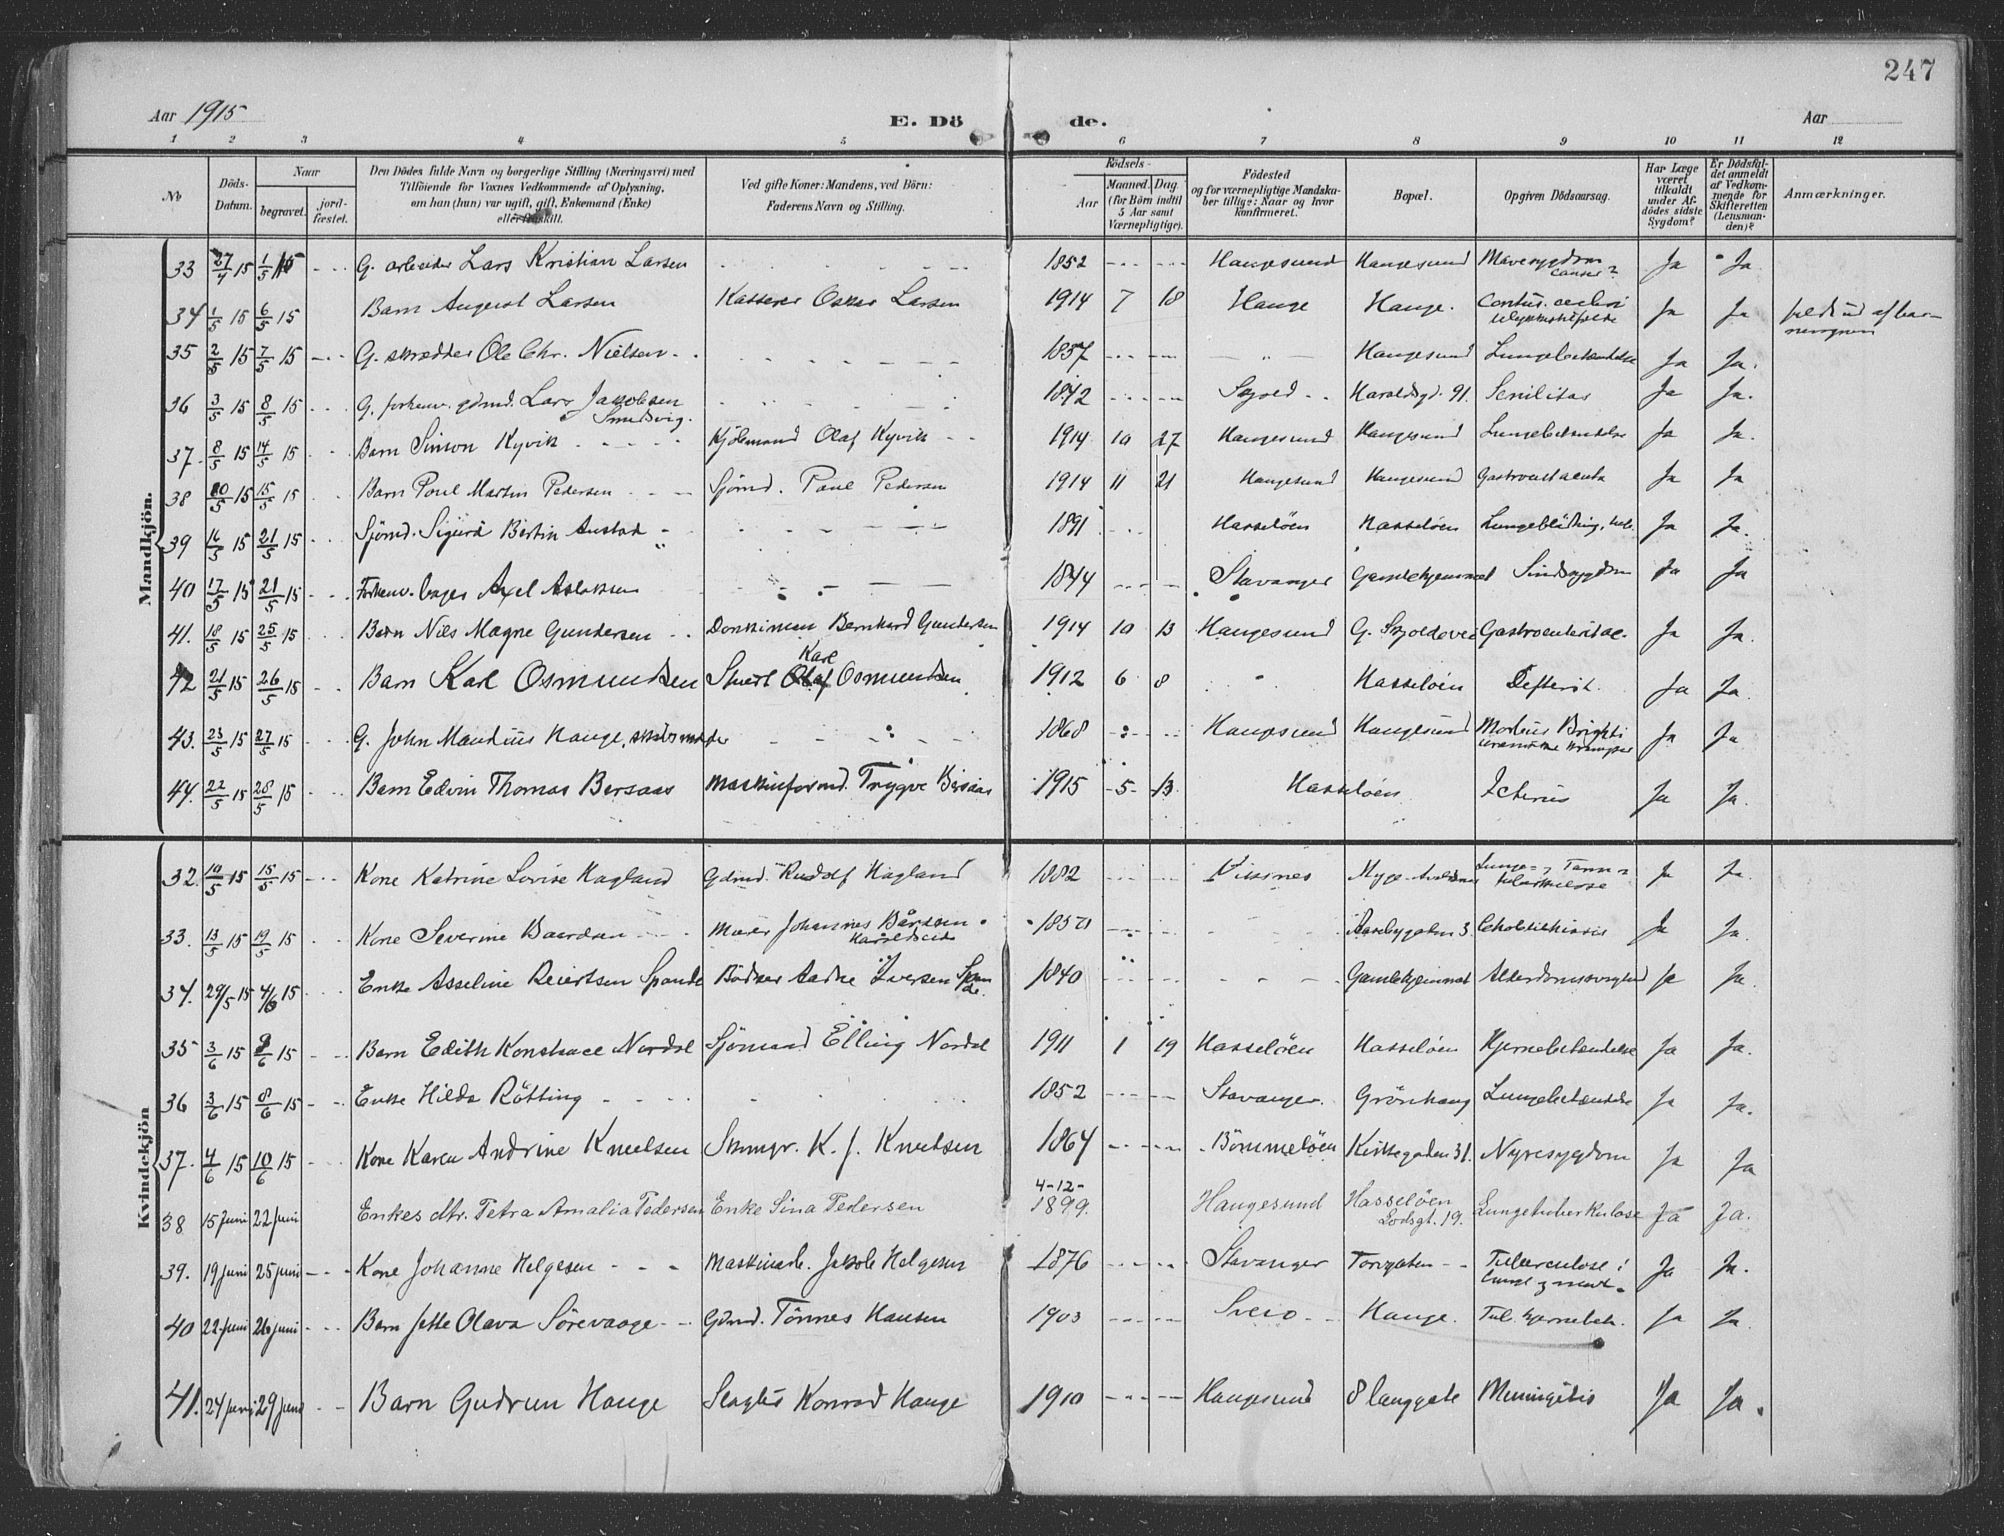 247
Aar 1915
E. Dö de.
Aar
1 2 3 4 5 6 7 8 9 10 11 12
No
Döds-Datum.
Naar
begravet.
jord-fæstet.
Den Dödes fulde Navn og borgerlige Stilling (Næringsvei) med
Tilföiende for Voxnes Vedkommende af Oplysning,
om han (hun) var ugift, gift, Enkemand (Enke)
eller fraskilt.
Ved gifte Koner: Mandens, ved Börn:
Faderens Navn og Stilling.
Födsels-
Aar
Maaned. Dag.
(for Börn indtil
5 Aar samt
Værnepligtige).
Födested
og for værnepligtige Mandska-
ber tillige: Naar og hvor
konfirmeret.
Bopæl.
Opgiven Dödsaarsag.
Har Læge
været
tilkaldt
under Af-
dödes sidste
Sygdom?
Er Dödsfal-
det anmeldt
af Vedkom-
mende for
Skifteretten
(Lensman-
den)?
Anmærkninger.
Mandkjön.
33 27/4 15 1/5 15 G. arbeider Lars Kristian Larsen 1852 Haugesund Haugesund Mavesygdom cancer? Ja Ja
34 1/5 15 6/5 15 Barn August Larsen Kasserer Oskar Larsen 1914 7 18 Hauge Hauge. Contus. cerebri Ulykkestilfælde Ja Ja faldt ud af bar-
nevognen
35 2/5 15 7/5 15 G. skrædder Ole Chr. Nielsen 1857 - " - Haugesund Lungebetændelse Ja Ja.
36 3/5 15 8/5 15 G. forhenv. gdmd. Lars Jakobsen Smedsvig. 1842 Skjold Haraldsgd. 91. Senilitas Ja Ja.
37. 8/5 15 14/5 15 Barn Simon Kyvik Kjöbmand Olaf Kyvik 1914 10 27 Haugesund Haugesund Lungebetændelse Ja Ja.
38 10/5 15 15/5 15 Barn Poul Martin Pedersen Sjömd. Paul Pedersen 1914 11 21 Haugesund Haugesund Ja Ja
39 16/5 15 21/5 15 Sjömd. Sigurd Bertin Austad 1891 Hasselöen Hasselöen Lungeblödning, tub. Ja Ja.
40 17/5 15 21/5 15 Forhenv. bager Axel Aslaksen 1844 Stavanger Gamlehjemmet Sindssygdom Ja Ja
41. 18/5 15 25/5 15 Barn Nils Magne Gundersen Donkiman Bernhard Gundersen 1914 10 13 Haugesund G. Skjoldavei Ja Ja.
42 21/5 15 26/5 15 Barn Karl Osmundsen Stuert Karl Olaf Osmundsen 1912 6 8 " Hasselöen Difterit. Ja Ja.
43. 23/5 15 27/5 15 G. John Mandius Hauge, 1868 Haugesund Haugesund Morbus Brighti uræmiske kramper Ja Ja
44. 22/5 15 28/5 15 Barn Edvin Thomas Bersaas Maskinformd. Trygve Bersaas 1915 5 13 Hasselöen Icterus Ja Ja.
Kvindekjön
32. 10/5 15 15/5 15 Kone Katrine Lovise Hagland Gdmd. Rudolf Hagland 1882 Visnes Lunge- & Tarm- tuberkulose Ja Ja.
33. 13/5 15 19/5 15 Kone Severine Baardsen Murer Johannes Bårdsen Haraldseid Aasbygaten 3. Cholelithiasis Ja Ja.
34. 29/5 15 4/6 15 Enke Asseline Reiertsen Spande Bödker Aadne Iversen Span de. 1840 Gamlehjemmet Alderdomssvaghed Ja Ja.
35 3/6 15 9/6 15 Barn Edith Konstance Nordal Sjömand Elling Nordal 1911 1 19 Hasselöen Hasselöen Hjernebetændelse Ja Ja.
36 3/6 15 8/6 15 Enke Hilda Rötting 1852 Stavanger. Grönhaug Lungebetændelse Ja Ja.
37. 4/6 15 10/6 15 Kone Karen Andrine Knutsen Skomgr. K. J. Knutsen 1864 Bömmelöen Kirkegaden 31. Nyresygdom Ja Ja
38 15 juni 22 juni Enkes dtr. Petra Amalia Pedersen Enke Sina Pedersen 4-12-1899. Haugesund Hasselöen Lodsgt. 19. Lungetuberkulose Ja Ja.
39. 19 juni 25 juni Kone Johanne Helgesen Maskinarb. Jakob Helgesen 1876 Stavanger Torvgaten Tuberculose i Ja Ja.
40 22 juni 26 juni Barn Jette Olava Sörevaage Gdmd. Tönnes Hansen 1903 Sveio Hauge. Tub. hjernebet. Ja Ja.
41. 24 juni 29 juni Barn Gudrun Hauge Slagter Konrad Hauge 1910 Haugesund 8 langgate Meningitis Ja Ja.